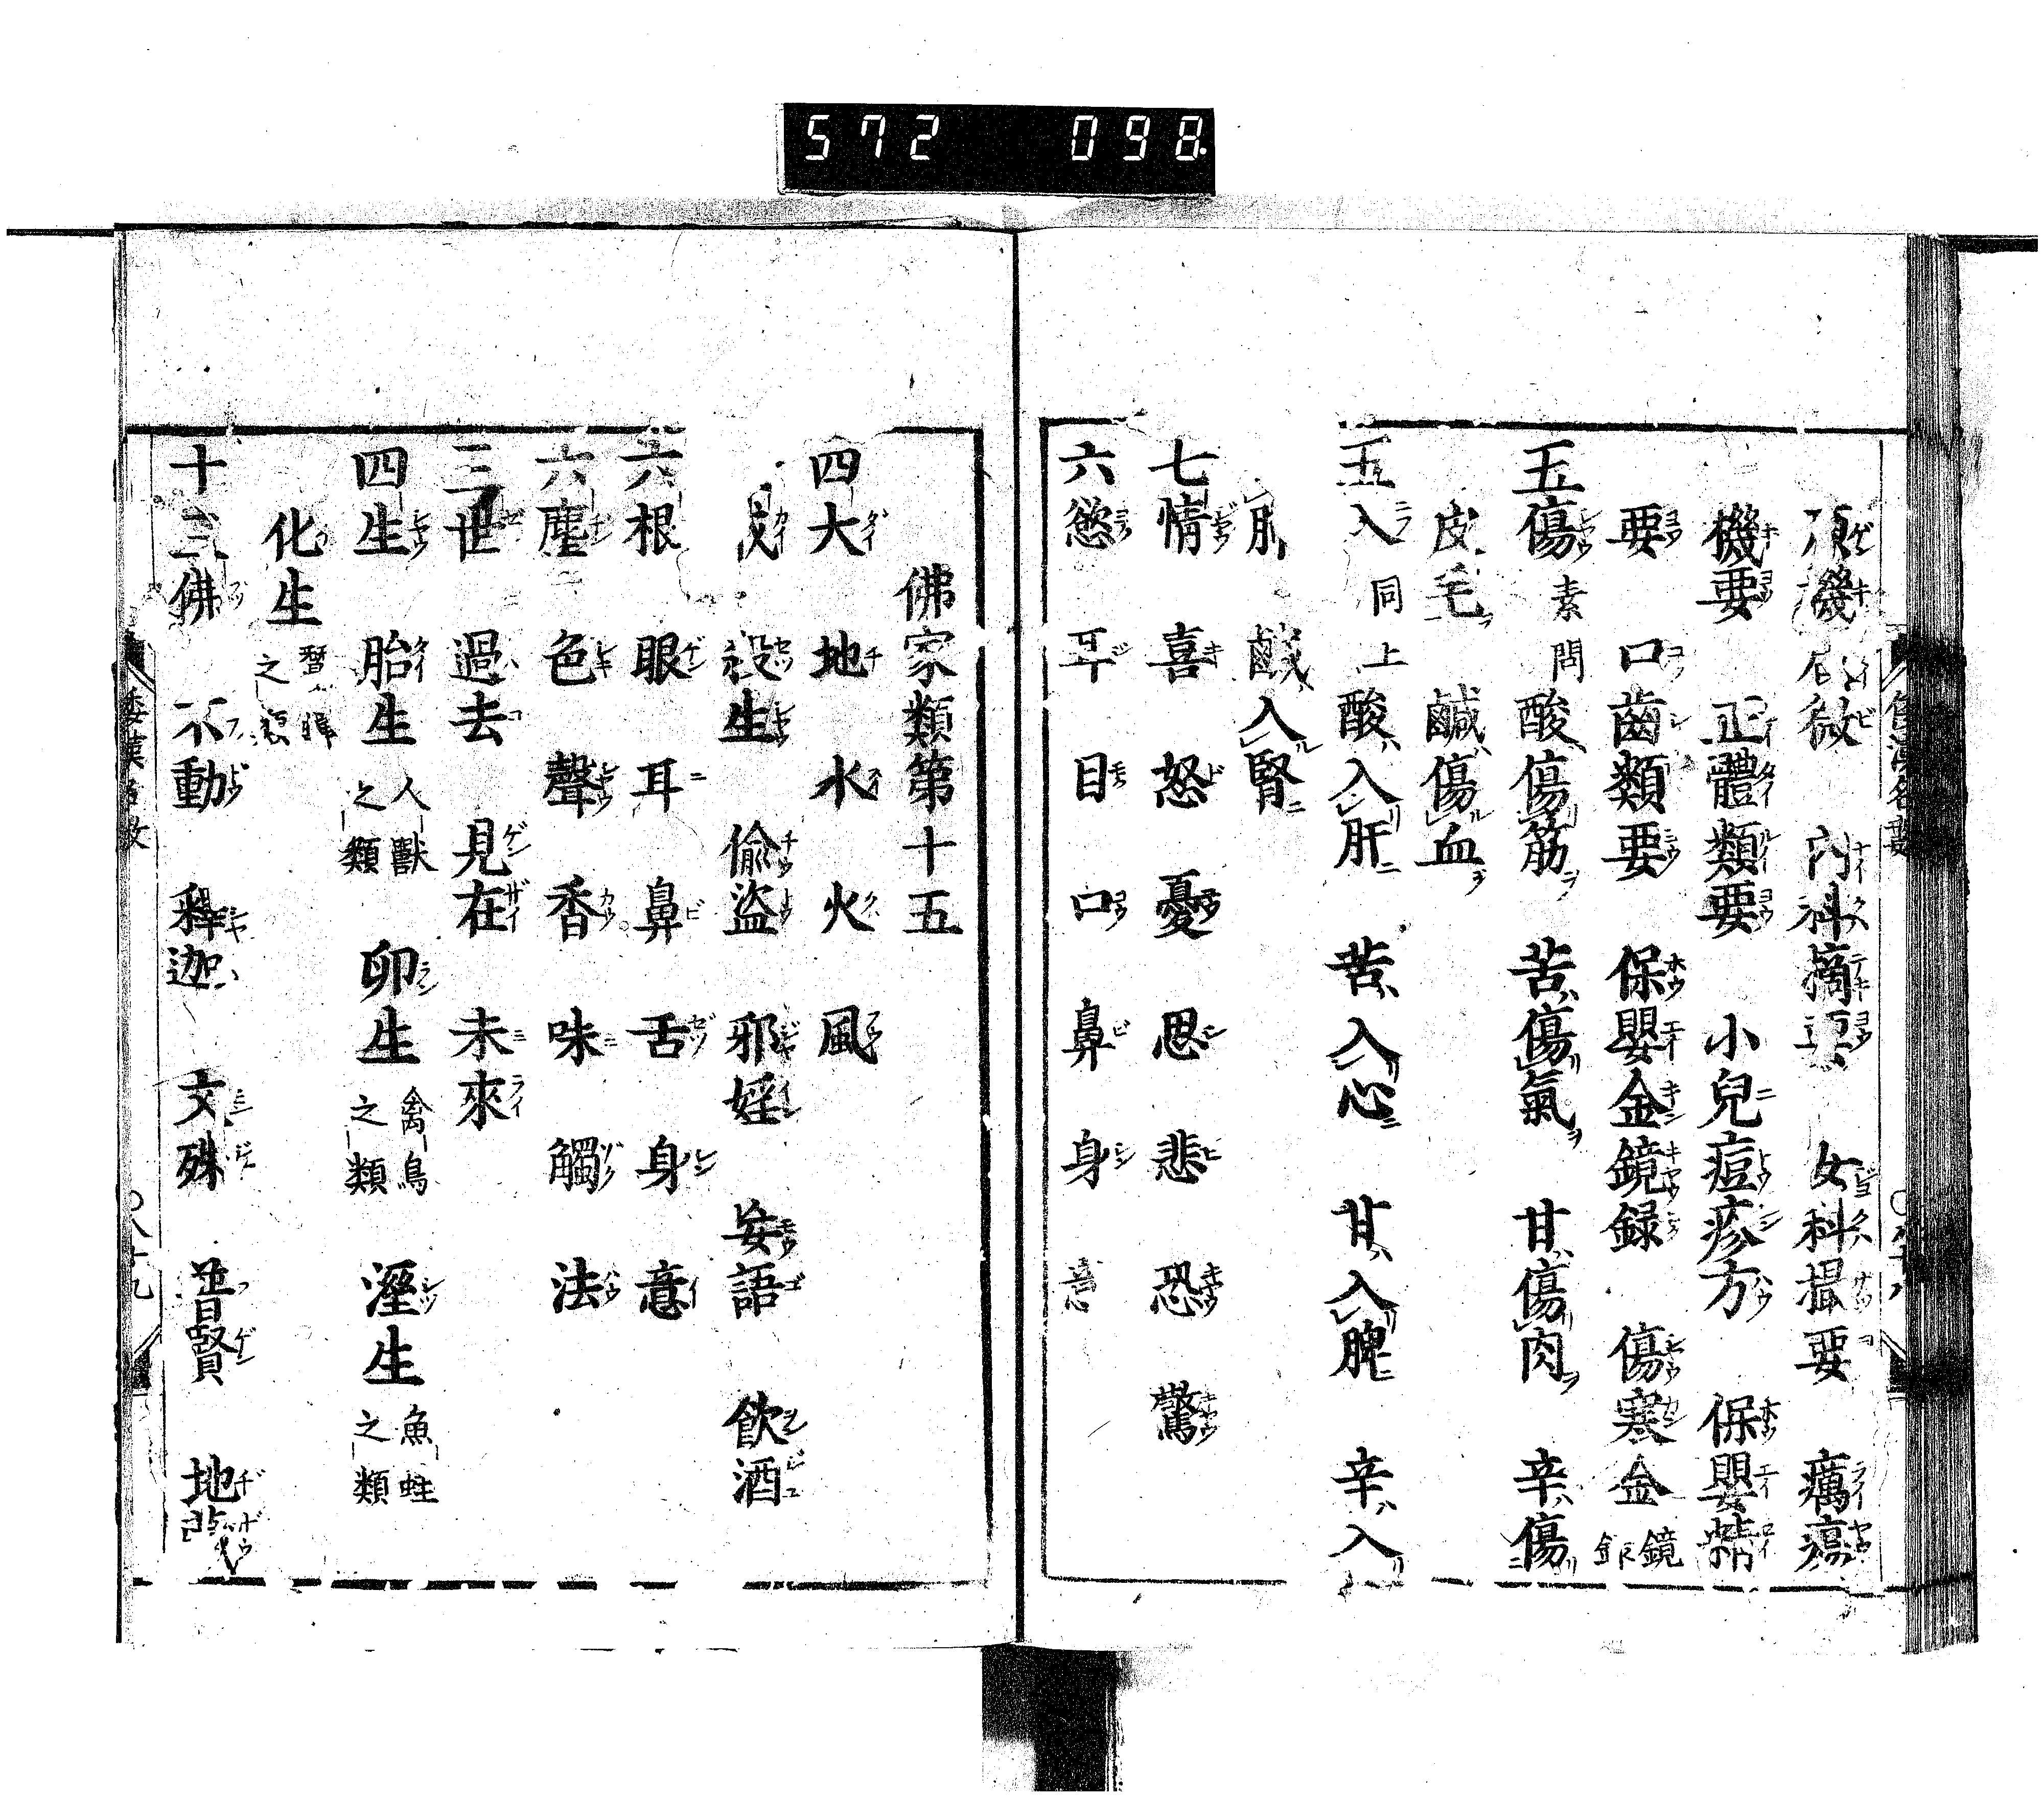 572 098
機 微 内科摘要 女科撮要 癘瘍
機要 正體類要 小兒痘疹方 保嬰
要 口齒類要 保嬰金鏡録 傷寒金鏡
五傷 素問 酸傷筋 苦傷氣 甘傷肉 辛傷
皮毛 鹹傷血
五入 同上 酸入肝 苦入心 甘入脾 辛入
鹹入腎
七情 喜 怒 憂 思 悲 恐 驚
六慾 耳 目 口 鼻 身 意
佛家類第十五
四大 地 水 火 風
戒 殺生 偸盜 邪婬 妄語 飮酒
六根 眼 耳 鼻 舌 身 意
六塵 色 聲 香 味 觸 法
三世 過去 見在 未來
四生 胎生 人獸之類 卵生 禽鳥之類 溼生 魚蛙之類
化生 之類
十三佛 不動 釋迦 文殊 普賢 地